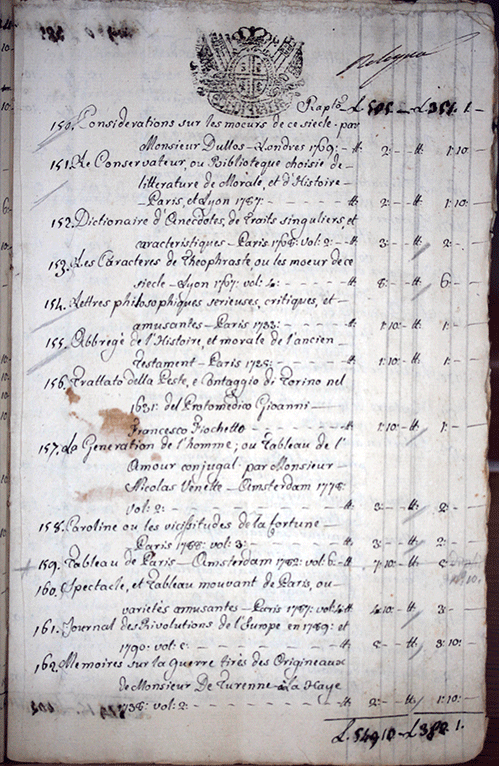 Bologna
Rapto L. 505 — L. 351. 1.-
150. Considerations sur les moeurs de ce siecle. par
Monsieur Dullos – Londres 1769: - tt. 2: - - tt. 1: 10: -
151. Le Conservateur, ou Biblioteque choisie de
litterature de Morale, et d'Histoire
- Paris, et Lyon 1787: - - - - tt. 2: - - tt. 1: 10: -
152. Dictionaire d'Anecdotes, de traits singuliers, et
caracteristiques – Paris 1768: vol: 2: - - tt. 3: - - tt. 2: -
153. Les Caracteres de Theophraste, ou les moeur de ce
siecle – Lyon 1767: vol: 4: - - - tt. 8: - - tt. 6: -
154. Lettres philosophiques serieuses, critiques, et
amusantes – Paris 1733: - - - - tt. 1: 10: - tt. 1: -
155. Abbregé de l'Histoire, et morale de l'ancien
Testament – Paris 1728: - - - tt. 1: 10: - tt. 1: -
156. Trattato della Peste, e Contaggio di Torino nel
1631: del Protomedico Gioanni
Francesco Fiochetto - - - - tt. 1: 10: - tt. 1: -
157. La Generation de l'homme; ou Tableau de l'
Amour conjugal: par Monsieur
Nicolas Venette – Amsterdam 1778:
vol: 2: - - - - tt. 3: - - tt. 2: -
158. Caroline ou les vicissitudes de la fortune
Paris 1788: vol: 3: - - - - tt. 3: - - tt. 2: -
159. Tableau de Paris – Amsterdam 1782: vol: 6: - tt. 7: 10: - tt. 5: -
160. Spectacle, et Tableau mouvant de Paris, ou
varietés amusantes – Paris 1787: vol: 4: tt. 4: 10: - tt. 3: -
161. Journal des Rivolutions de l'Europe en 1789: et
1790: vol: 5: - - - - tt. 5: - - tt. 3: 10: -
162. Memoires sur la Guerre tirés des Origineaux
de Monsieur De Turenne a la Haye
1738: vol: 2: - - - - tt. 2: - - tt. 1: 10: -
L. 549 10 – L. 382. 1.